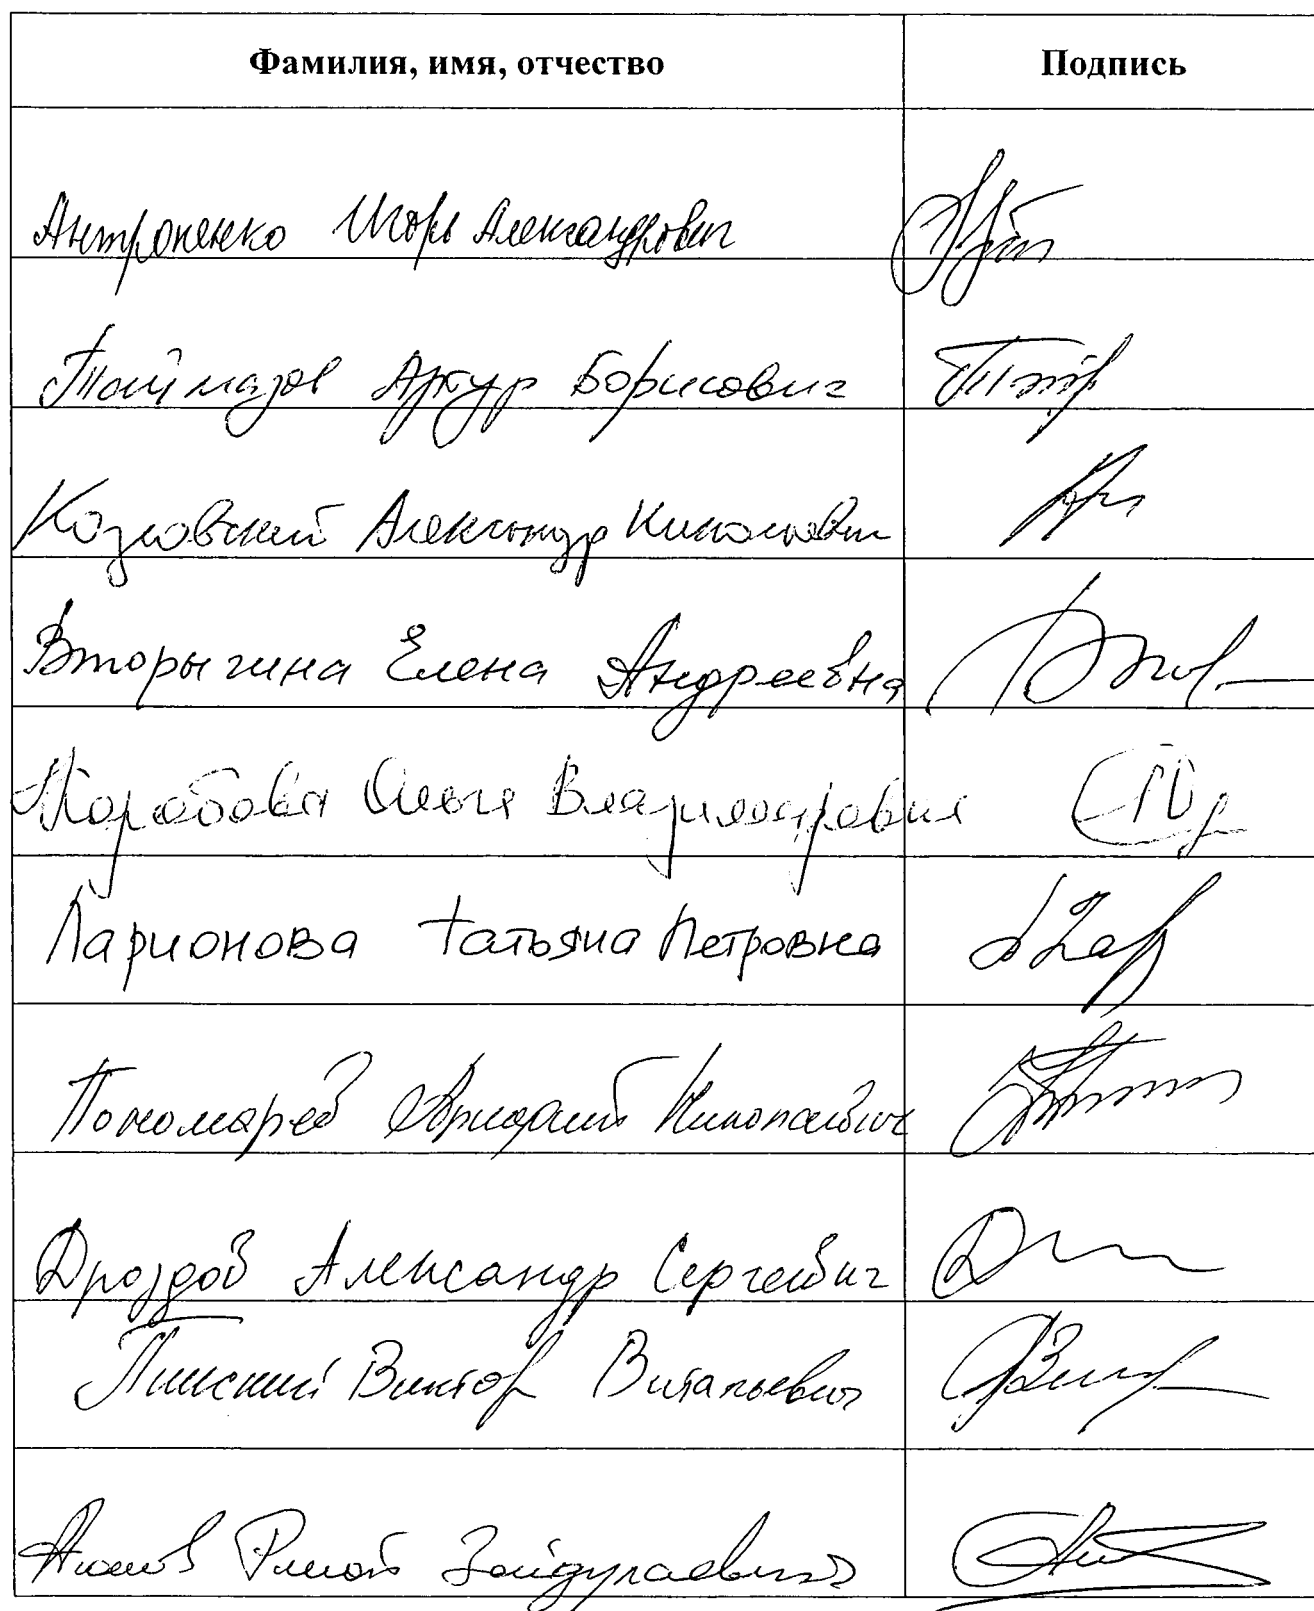 Фамилия, имя, отчество Подпись
Антропенко Игорь Александрович
Таймазов Артур Борисович
Козловский Александр Николаевич
Вторыгина Елена Андреевна
Коробова Ольга Владимировна
Ларионова Татьяна Петровна
Пономарев Аркадий Николаевич
Дроздов Александр Сергеевич
Пинский Виктор Витальевич
Аюпов Ринат Зайдулаевич